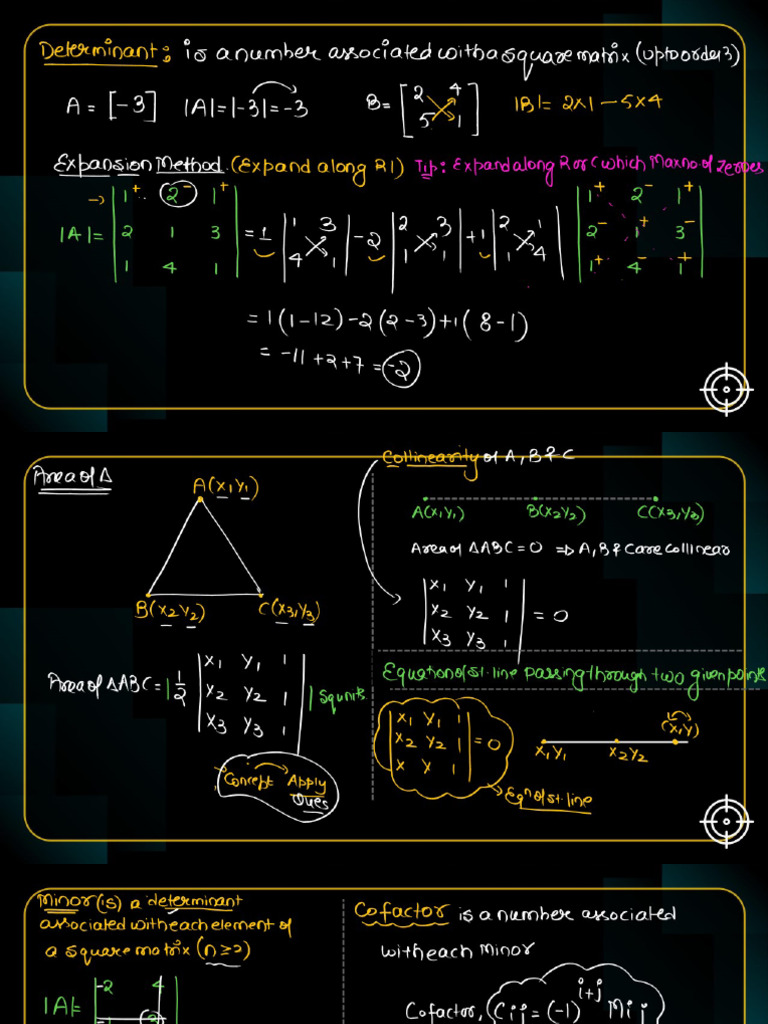 Determinant: is a number associated with a square matrix (upto order 3)
A = [-3] |A| = |-3| = -3 B = [2 4 |B| = 2×1 - 5×4
5 1]
Expansion Method (Expand along R1) Tip: Expand along R or C which Max no of zeroes
|A| = |1+ 2- 1+| = 1 |1 3| - 2 |2 3| + 1 |2 1| |1+ 2- 1+|
|2 1 3| |4 1| |1 1| |1 4| |2- 1+ 3-|
|1 4 1| |1+ 4- 1+|
= 1(1-12) - 2(2-3) + 1(8-1)
= -11 + 2 + 7 = -2
Area of Δ
A(x1,y1)
B(x2y2) C(x3,y3)
Area of ΔABC = |1/2 |x1 y1 1| | sq units
|x2 y2 1|
|x3 y3 1|
Concept → Apply
Ques
Collinearity of A, B & C
A(x1y1) B(x2y2) C(x3,y3)
Area of ΔABC = 0 ⇒ A, B & C are collinear
|x1 y1 1|
|x2 y2 1| = 0
|x3 y3 1|
Equation of st. line passing through two given points
|x1 y1 1|
|x2 y2 1| = 0
|x y 1|
x1y1 x2y2 (x,y)
Eqn of st. line
Minor (is) a determinant
associated with each element of
a square matrix (n≥2)
|A| = |-2 4
Cofactor is a number associated
with each Minor
Cofactor, Cij = (-1)^i+j Mij